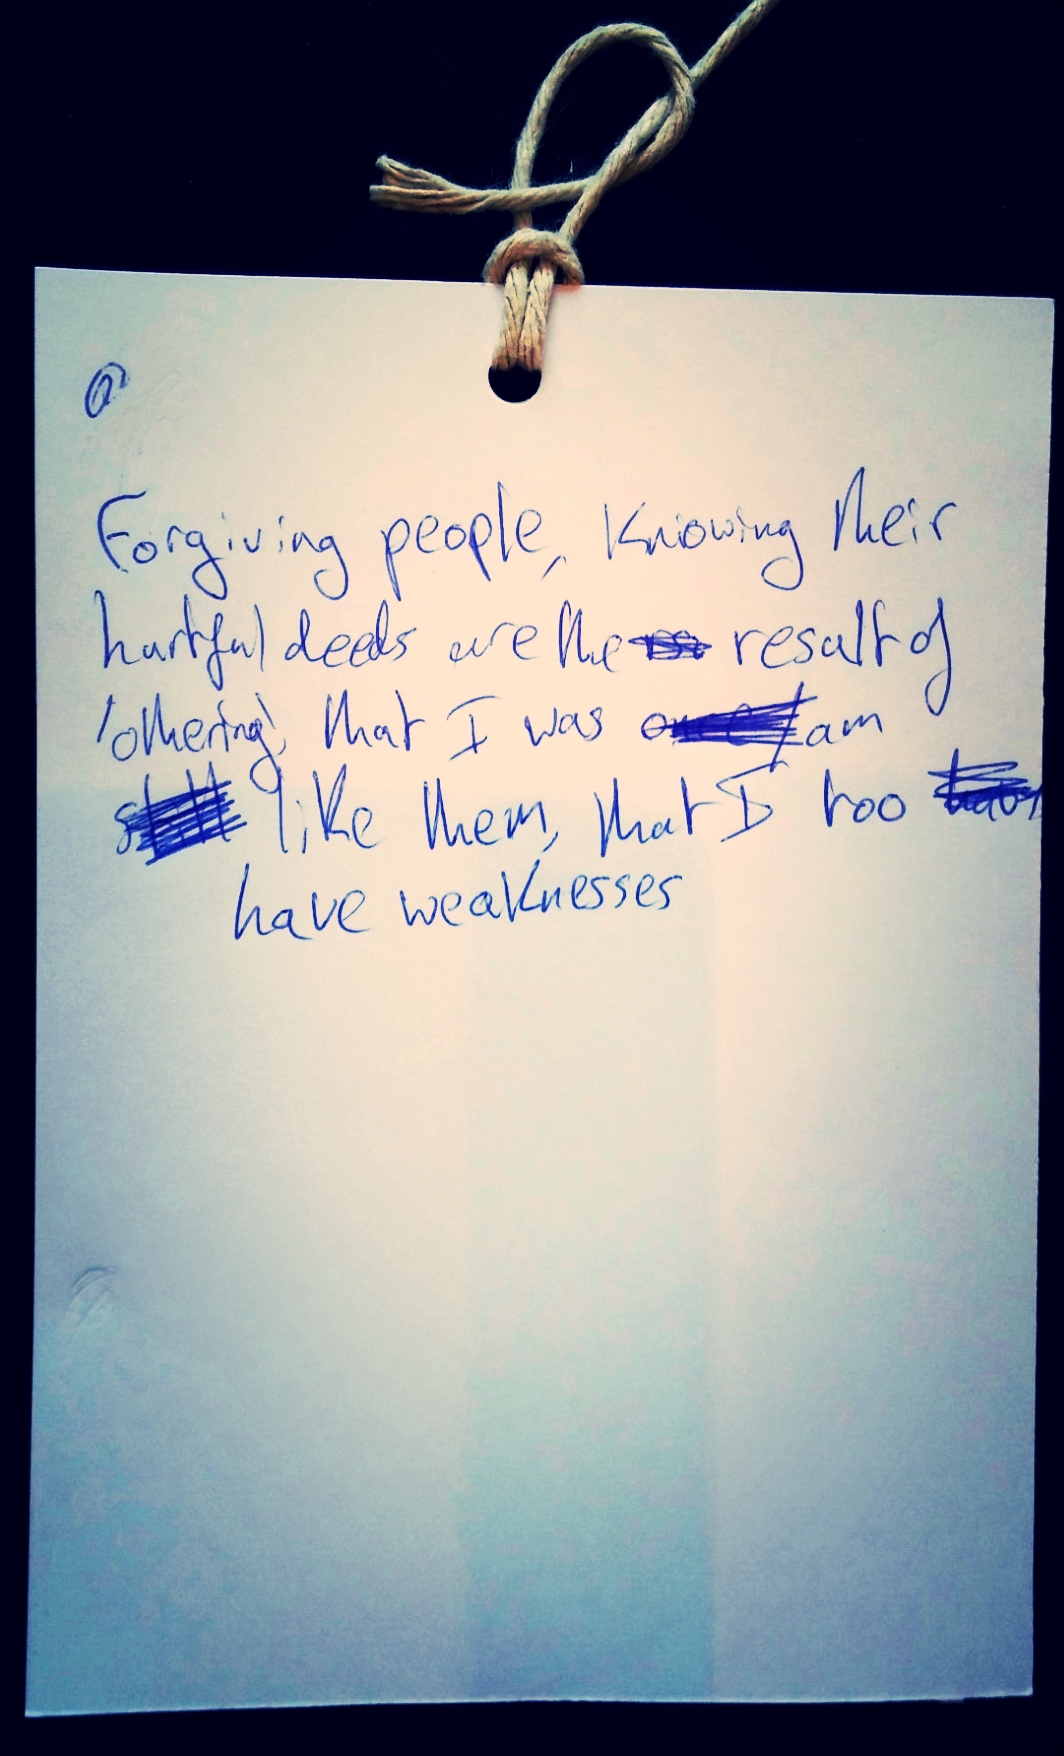 Forgiving people, Knowing their
hurtful deeds are the result of
'othering', that I was /am
like them, that I too
have weaknesses